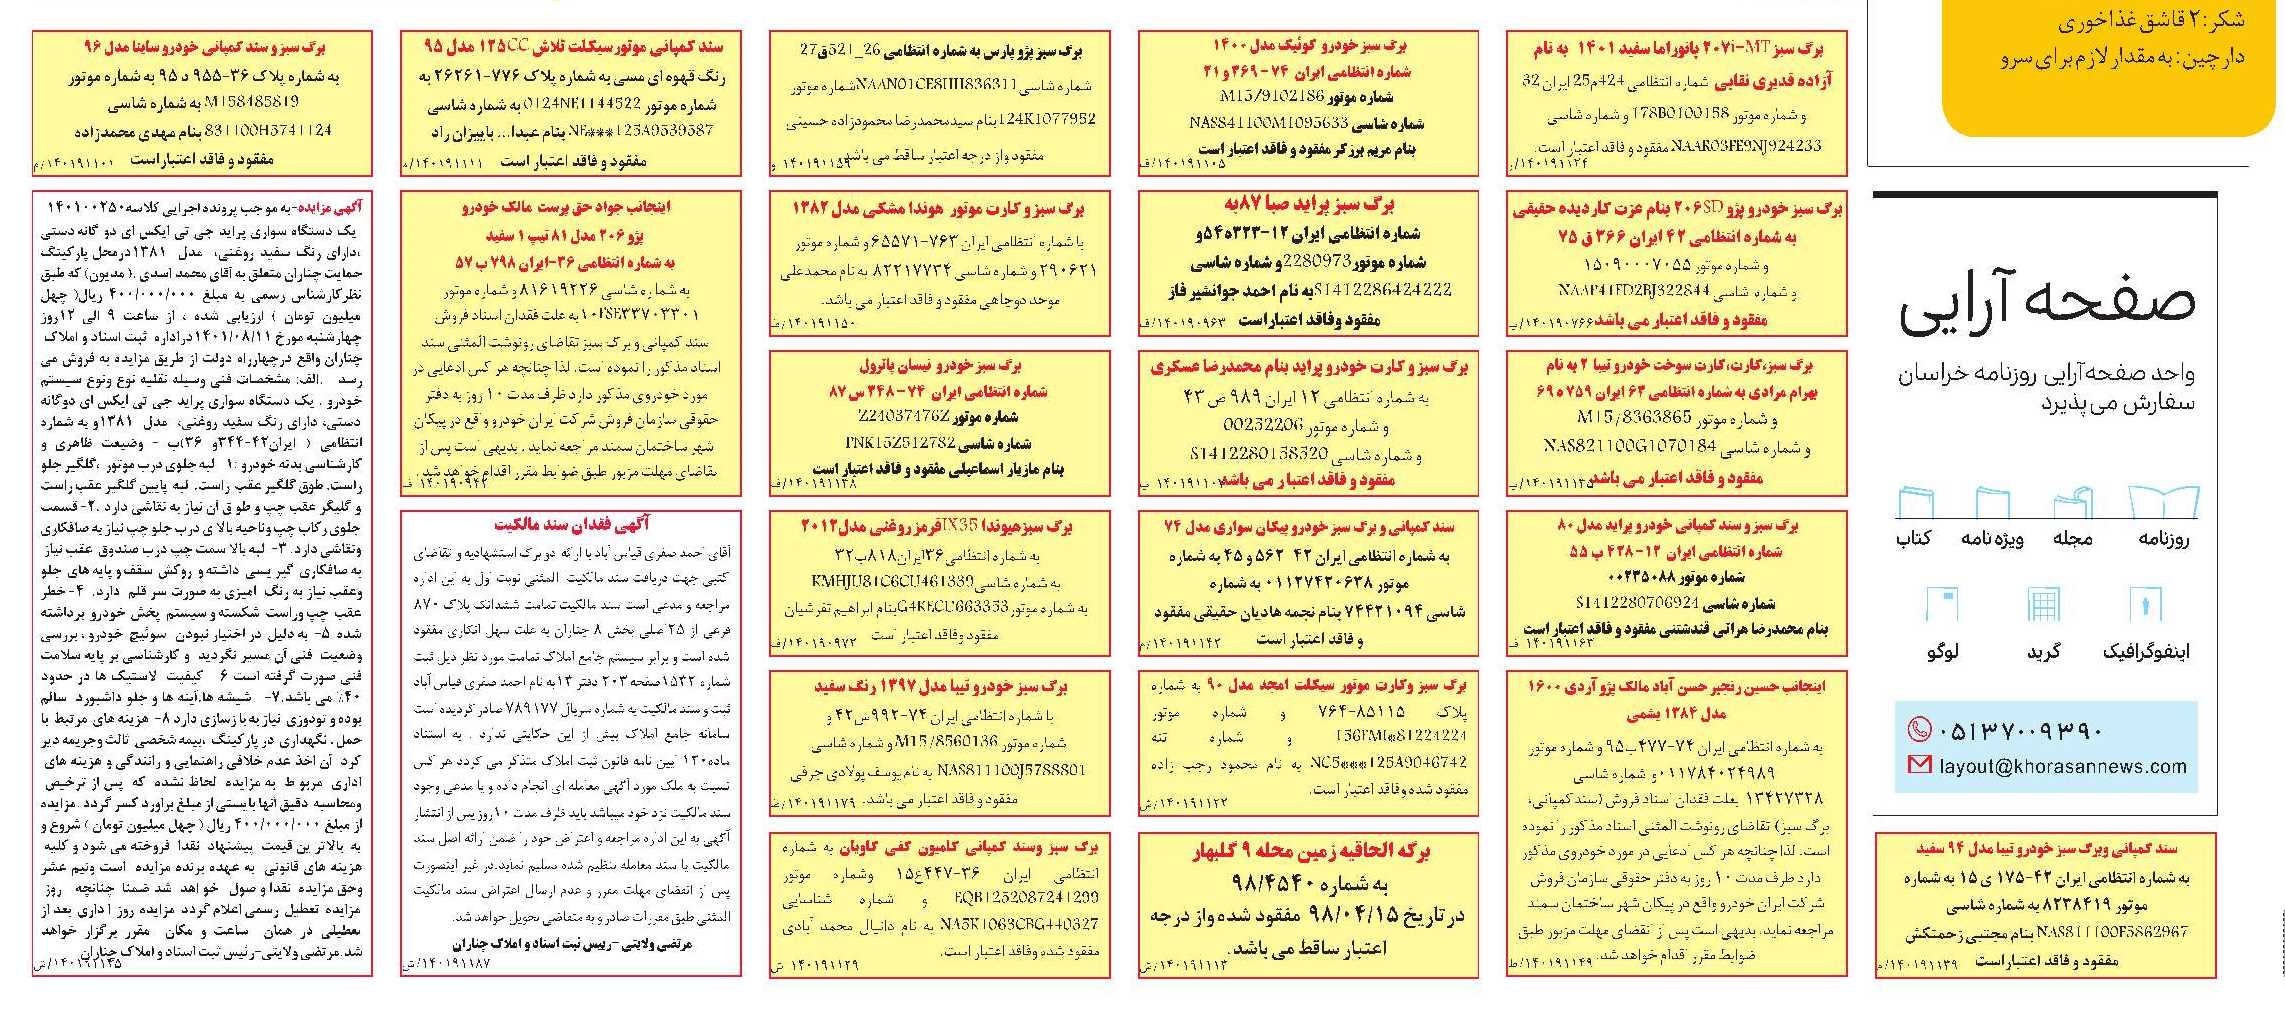 شکر: ۲ قاشق غذاخوری
دارچین: به مقدار لازم برای سرو
صفحه آرایی
واحد صفحه‌آرایی روزنامه خراسان
سفارش می‌پذیرد
روزنامه
مجله
ویژه نامه
کتاب
اینفوگرافیک
گرید
لوگو
۰۵۱۳۷۰۰۹۳۹۰
layout@khorasannews.com
سند کمپانی وبرگ سبز خودرو تیبا مدل ۹۴ سفید
به شماره انتظامی ایران ۴۲-۱۷۵ ی ۱۵ به شماره
موتور ۸۲۳۸۴۱۹ به شماره شاسی
NAS811100F5862967 بنام مجتبی زحمتکش
مفقود و فاقد اعتباراست
۱۴۰۱۹۱۱۳۹/م
برگ سبز ۲۰۷i-MT پانوراما سفید ۱۴۰۱ به نام
آزاده قدیری نقابی شماره انتظامی 424م25 ایران 32
و شماره موتور 178B0100158 و شماره شاسی
NAAR03FE9NJ924233 مفقود و فاقد اعتبار است.
۱۴۰۱۹۱۱۲۴/ر
برگ سبز خودرو پژو ۲۰۶SD بنام عزت کاردیده حقیقی
به شماره انتظامی ۴۲ ایران ۳۶۶ ق ۷۵
و شماره موتور ۱۵۰۹۰۰۰۷۰۵۵
و شماره شاسی NAAP41FD2BJ322844
مفقود و فاقد اعتبار می باشد
۱۴۰۱۹۰۷۶۶/پ
برگ سبز،کارت،کارت سوخت خودرو تیبا ۲ به نام
بهرام مرادی به شماره انتظامی ۶۳ ایران ۷۵۹ ه ۶۹
و شماره موتور M15/8363865
و شماره شاسی NAS821100G1070184
مفقود و فاقد اعتبار می باشد
۱۴۰۱۹۱۱۲۵/پ
برگ سبز و سند کمپانی خودرو پراید مدل ۸۰
شماره انتظامی ایران ۱۲-۴۲۸ ب ۵۵
شماره موتور ۰۰۲۳۵۰۸۸
شماره شاسی S1412280706924
بنام محمدرضا هراتی قندشتنی مفقود و فاقد اعتبار است
۱۴۰۱۹۱۱۶۳ ف
اینجانب حسین رنجبر حسن آباد مالک پژو آردی ۱۶۰۰
مدل ۱۳۸۴ یشمی
به شماره انتظامی ایران ۷۴-۴۷۷ ب ۹۵ و شماره موتور
۰۱۱۷۸۴۰۲۴۹۸۹ و شماره شاسی
۱۳۴۲۷۳۲۸ بعلت فقدان اسناد فروش (سندکمپانی،
برگ سبز) تقاضای رونوشت المثنی اسناد مذکور را نموده
است. لذا چنانچه هر کس ادعایی در مورد خودروی مذکور
دارد ظرف مدت ۱۰ روز به دفتر حقوقی سازمان فروش
شرکت ایران خودرو واقع در پیکان شهر ساختمان سمند
مراجعه نماید. بدیهی است پس از انقضای مهلت مزبور طبق
ضوابط مقرر اقدام خواهد شد.
۱۴۰۱۹۱۱۴۹/ط
برگ سبز خودرو کوئیک مدل ۱۴۰۰
شماره انتظامی ایران ۷۴-۳۶۹ و ۲۱
شماره موتور M15/9102186
شماره شاسی NAS841100M1095633
بنام مریم برزگر مفقود و فاقد اعتبار است
۱۴۰۱۹۱۱۰۵/ف
برگ سبز پراید صبا ۸۷به
شماره انتظامی ایران ۱۲-۳۲۳ه۵۴و
شماره موتور2280973و شماره شاسی
S1412286424222به نام احمد جوانشیر فاز
مفقود وفاقد اعتباراست
۱۴۰۱۹۰۹۶۳/ف
برگ سبز و کارت خودرو پراید بنام محمدرضا عسکری
به شماره انتظامی ۱۲ ایران ۹۸۹ ص ۴۳
و شماره موتور 00252206
و شماره شاسی S1412280158320
مفقود و فاقد اعتبار می باشد
سند کمپانی و برگ سبز خودرو پیکان سواری مدل ۷۴
به شماره انتظامی ایران ۴۲ ۵۶۲ و ۴۵ به شماره
موتور ۰۱۱۲۷۴۲۰۶۳۸ به شماره
شاسی ۷۴۴۲۱۰۹۴ بنام نجمه هادیان حقیقی مفقود
و فاقد اعتبار است
۱۴۰۱۹۱۱۴۲/م
برگ سبز وکارت موتور سیکلت امجد مدل ۹۰ به شماره
پلاک ۸۵۱۱۵-۷۶۴ و شماره موتور
156FMI*81224224 و شماره تنه
NC5***125A9046742 به نام محمود رجب زاده
مفقود شده وفاقد اعتبار است.
۱۴۰۱۹۱۱۲۲/ش
برگه الحاقیه زمین محله ۹ گلبهار
به شماره ۹۸/۴۵۴۰
در تاریخ ۹۸/۰۴/۱۵ مفقود شده واز درجه
اعتبار ساقط می باشد.
۱۴۰۱۹۱۱۱۳/ش
برگ سبز پژو پارس به شماره انتظامی 26_521ق27
شماره شاسی NAAN01CE8HH836311شماره موتور
124K1077952بنام سیدمحمدرضا محمودزاده حسینی
مفقود واز درجه اعتبار ساقط می باشد
۱۴۰۱۹۱۱۵۹ و
برگ سبز و کارت موتور هوندا مشکی مدل ۱۳۸۲
با شماره انتظامی ایران ۷۶۳-۶۵۵۷۱ و شماره موتور
۲۹۰۶۲۱ و شماره شاسی ۸۲۲۱۷۷۳۴ به نام محمدعلی
موحد دوجاهی مفقود و فاقد اعتبار می باشد.
۱۴۰۱۹۱۱۵۰/ط
برگ سبزخودرو نیسان پاترول
شماره انتظامی ایران ۷۴-۳۴۸ س ۸۷
شماره موتور Z24037476Z
شماره شاسی PNK15Z512782
بنام مازیار اسماعیلی مفقود و فاقد اعتبار است
۱۴۰۱۹۱۱۳۸/ف
برگ سبزهیوندا IX35قرمز روغنی مدل۲۰۱۲
به شماره انتظامی ۳۶ایران۸۱۸ب۳۲
به شماره شاسی KMHJU81C6CU461339
به شماره موتور G4KECU663353بنام ابراهیم تفرشیان
مفقود وفاقد اعتبار است
۱۴۰۱۹۰۹۷۲/ف
برگ سبز خودرو تیبا مدل ۱۳۹۷ رنگ سفید
با شماره انتظامی ایران ۷۴-۹۹۲س۴۲ و
شماره موتور M15/8560136 و شماره شاسی
NAS811100J5788801 به نام یوسف پولادی جرفی
مفقود و فاقد اعتبار می باشد.
۱۴۰۱۹۱۱۷۹/ط
برگ سبز وسند کمپانی کامیون کفی کاویان به شماره
انتظامی ایران ۳۶-۴۴۷ع۱۵ وشماره موتور
EQB1252087241299 و شماره شناسایی
NA5K1063CBG440327 به نام دانیال محمد آبادی
مفقود شده وفاقد اعتبار است.
۱۴۰۱۹۱۱۲۹ ش
سند کمپانی موتورسیکلت تلاش ۱۲۵CC مدل ۹۵
رنگ قهوه ای مسی به شماره پلاک ۷۷۶-۲۶۲۶۱ به
شماره موتور 0124NE1144522 به شماره شاسی
NE***125A9539587 بنام عبدا... باییزان راد
مفقود و فاقد اعتبار است
۱۴۰۱۹۱۱۱۱/م
اینجانب جواد حق پرست مالک خودرو
پژو ۲۰۶ مدل ۸۱ تیپ ۱ سفید
به شماره انتظامی ۳۶-ایران ۷۹۸ ب ۵۷
به شماره شاسی ۸۱۶۱۹۲۲۶ و شماره موتور
۱۰FSE۳۳۷۰۳۳۰۱ به علت فقدان اسناد فروش
سند کمپانی و برگ سبز تقاضای رونوشت المثنی سند
اسناد مذکور را نموده است. لذا چنانچه هر کس ادعایی در
مورد خودروی مذکور دارد ظرف مدت ۱۰ روز به دفتر
حقوقی سازمان فروش شرکت ایران خودرو واقع در پیکان
شهر ساختمان سمند مراجعه نماید. بدیهی است پس از
تقاضای مهلت مزبور طبق ضوابط مقرر اقدام خواهد شد.
۱۴۰۱۹۰۹۴۲ ف
آگهی فقدان سند مالکیت
آقای احمد صفری قیاس آباد با ارائه دو برگ استشهادیه و تقاضای
کتبی جهت دریافت سند مالکیت المثنی نوبت اول به این اداره
مراجعه و مدعی است سند مالکیت تمامت ششدانگ پلاک ۸۷۰
فرعی از ۲۵ اصلی بخش ۸ چناران به علت سهل انگاری مفقود
شده است و برابر سیستم جامع املاک تمامت مورد نظر ذیل ثبت
شماره ۱۵۳۲ صفحه ۲۰۳ دفتر ۱۳ به نام احمد صفری قیاس آباد
ثبت و سند مالکیت به شماره سریال ۷۸۹۱۷۷ صادر گردیده است
سامانه جامع املاک بیش از این حکایتی ندارد . به استناد
ماده ۱۲۰ آیین نامه قانون ثبت املاک متذکر می گردد هر کس
نسبت به ملک مورد آگهی معامله ای انجام داده و یا مدعی وجود
سند مالکیت نزد خود میباشد باید ظرف مدت ۱۰ روز پس از انتشار
آگهی به این اداره مراجعه و اعتراض خود را ضمن ارائه اصل سند
مالکیت یا سند معامله تنظیم شده تسلیم نماید.در غیر اینصورت
پس از انقضای مهلت مقرر و عدم ارسال اعتراض سند مالکیت
المثنی طبق مقررات صادر و به متقاضی تحویل خواهد شد.
مرتضی ولایتی -رییس ثبت اسناد و املاک چناران
۱۴۰۱۹۱۱۸۷/ش
برگ سبز و سند کمپانی خودرو ساینا مدل ۹۶
به شماره پلاک ۳۶-۹۵۵ د ۹۵ به شماره موتور
M158485819 به شماره شاسی
831100H5741124 بنام مهدی محمدزاده
مفقود و فاقد اعتباراست
۱۴۰۱۹۱۱۰۱/م
آگهی مزایده-به موجب پرونده اجرایی کلاسه ۱۴۰۱۰۰۲۵۰
یک دستگاه سواری پراید جی تی ایکس ای دو گانه دستی
،دارای رنگ سفید روغنی، مدل ۱۳۸۱ درمحل پارکینگ
حمایت چناران متعلق به آقای محمد اسدی .( مدیون) که طبق
نظرکارشناس رسمی به مبلغ ۴۰۰/۰۰۰/۰۰۰ ریال( چهل
میلیون تومان ) ارزیابی شده ، از ساعت ۹ الی ۱۲روز
چهارشنبه مورخ ۱۴۰۱/۰۸/۱۱ دراداره ثبت اسناد و املاک
چناران واقع درچهارراه دولت از طریق مزایده به فروش می
رسد .الف: مشخصات فنی وسیله نقلیه نوع ونوع سیستم
خودرو . یک دستگاه سواری پراید جی تی ایکس ای دوگانه
دستی، دارای رنگ سفید روغنی، مدل ۱۳۸۱و به شماره
انتظامی ( ایران۴۲-۳۴۴و ۳۶)ب - وضیعت ظاهری و
کارشناسی بدنه خودرو :۱ لبه جلوی درب موتور ،گلگیر جلو
راست. طوق گلگیر عقب راست. لبه پایین گلگیر عقب راست
و گلیگر عقب چپ و طوق آن نیاز به نقاشی دارد .۲- قسمت
جلوی رکاب چپ وناحیه بالا ی درب جلو چپ نیاز به صافکاری
ونقاشی دارد. ۳- لبه بالا سمت چپ درب صندوق عقب نیاز
به صافکاری گیر یسی داشته و روکش سقف و پایه های جلو
وعقب نیاز به رنگ امیزی به صورت سر قلم دارد. ۴- خطر
عقب چپ وراست شکسته و سیستم پخش خودرو برداشته
شده ۵- به دلیل در اختیار نبودن سوئیچ خودرو ، بررسی
وضعیت فنی آن مسیر نگردید و کارشناسی بر پایه سلامت
فنی صورت گرفته است ۶ کیفیت لاستیک ها در حدود
۴۰٪ می باشد.۷- شیشه ها،آینه ها و جلو داشبورد سالم
بوده و تودوزی نیاز به با زسازی دارد ۸- هزینه های مرتبط با
حمل. نگهداری در پارکینگ ،بیمه شخصی ثالث وجریمه دیر
کرد آن اخذ عدم خلافی راهنمایی و رانندگی و هزینه های
اداری مربوط به مزایده لحاظ نشده که پس از ترخیص
ومحاسبه دقیق آنها بایستی از مبلغ براورد کسر گردد . مزایده
از مبلغ ۴۰۰/۰۰۰/۰۰۰ ریال ( چهل میلیون تومان ) شروع و
به بالاتر ین قیمت پیشنهاد نقدا فروخته می شود و کلیه
هزینه های قانونی به عهده برنده مزایده است ونیم عشر
وحق مزایده نقدا و صول خواهد شد ضمنا چنانچه روز
مزایده تعطیل رسمی اعلام گردد مزایده روز ا داری بعد از
تعطیلی در همان ساعت و مکان مقرر برگزار خواهد
شد.مرتضی ولایتی-رئیس ثبت اسناد و املاک چناران
۱۴۰۱۹۱۱۴۵/ش